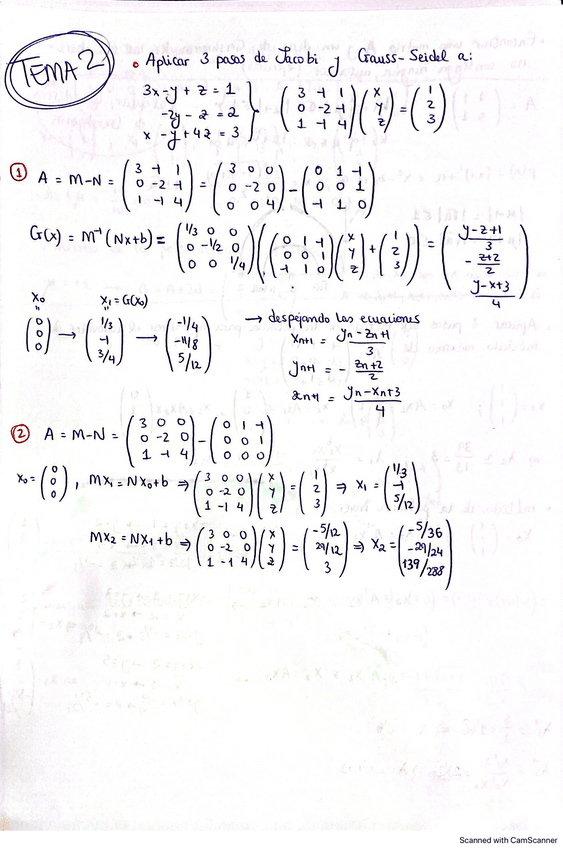 TEMA 2
• Aplicar 3 pasos de Jacobi y Gauss-Seidel a:
3x-y+z=1
-2y-z=2
x-y+4z=3
} (3 -1 1; 0 -2 -1; 1 -1 4)(x; y; z) = (1; 2; 3)
① A = M-N = (3 -1 1; 0 -2 -1; 1 -1 4) = (3 0 0; 0 -2 0; 0 0 4) - (0 1 -1; 0 0 1; -1 1 0)
G(x) = M⁻¹(Nx+b) = (1/3 0 0; 0 -1/2 0; 0 0 1/4)((0 1 -1; 0 0 1; -1 1 0)(x; y; z) + (1; 2; 3)) = ((y-z+1)/3; -(z+2)/2; (y-x+3)/4)
x₀ = (0; 0; 0) → x₁ = G(x₀) (1/3; -1; 3/4) → (-1/4; -11/8; 5/12)
→ despejando las ecuaciones
xₙ₊₁ = (yₙ-zₙ+1)/3
yₙ₊₁ = -(zₙ+2)/2
zₙ₊₁ = (yₙ-xₙ+3)/4
② A = M-N = (3 0 0; 0 -2 0; 1 -1 4) - (0 1 -1; 0 0 1; 0 0 0)
x₀ = (0; 0; 0), Mx₁ = Nx₀+b ⇒ (3 0 0; 0 -2 0; 1 -1 4)(x; y; z) = (1; 2; 3) ⇒ x₁ = (1/3; -1; 5/12)
Mx₂ = Nx₁+b ⇒ (3 0 0; 0 -2 0; 1 -1 4)(x; y; z) = (-5/12; 29/12; 3) ⇒ x₂ = (-5/36; -29/24; 139/288)
Scanned with CamScanner